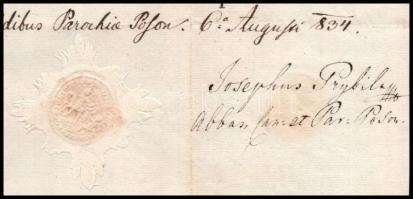 dibus Parochiæ Poson. 6ª Augusti 834.
Josephus Prybila
Abbas Can: et Par: Poson.